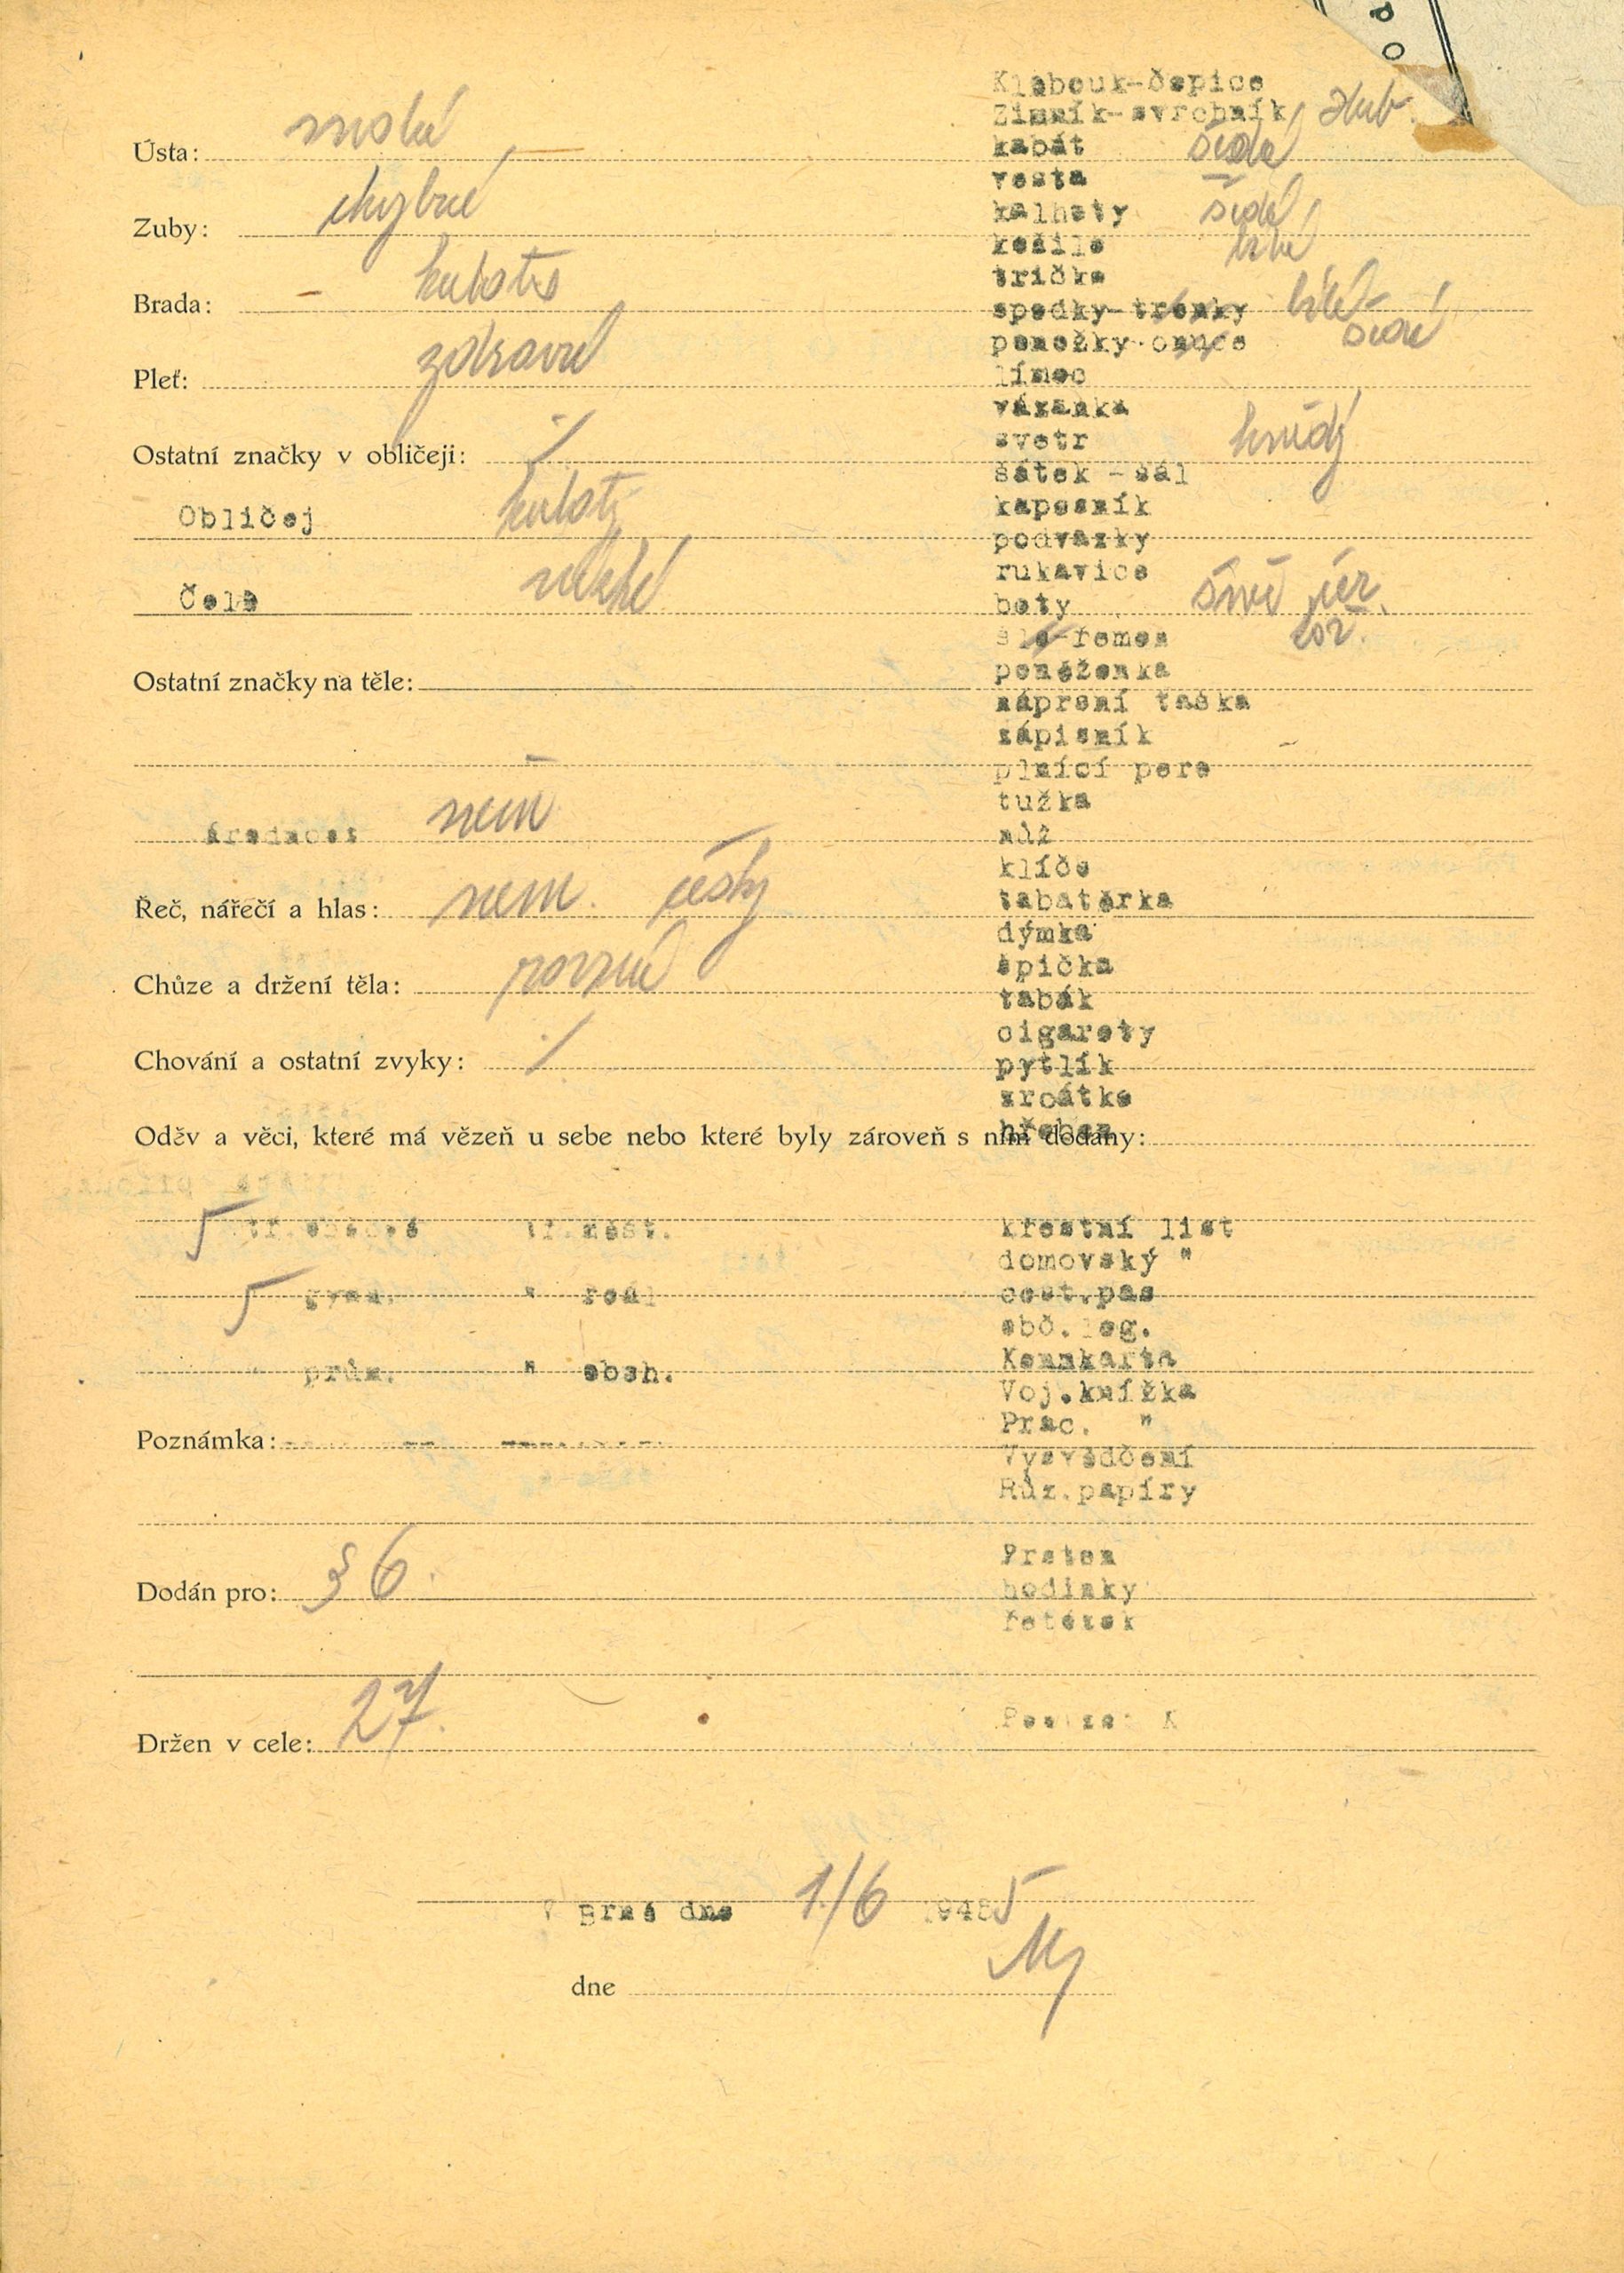 Ústa: malá
Zuby: chybné
Brada: kulatá
Pleť: zdravá
Ostatní značky v obličeji: ·/.
Obličej kulatý
Čelo nízké
Ostatní značky na těle:
árodnost něm
Řeč, nářečí a hlas: něm. česky
Chůze a držení těla: rovné
Chování a ostatní zvyky: ·/.
Oděv a věci, které má vězeň u sebe nebo které byly zároveň s ním dodány:
5 tř. obecné tř. měšt.
5 gymn. " reál
" prům. " obch.
Poznámka:
Dodán pro: § 6.
Držen v cele: 27.
Klobouk-čepice
Zimník-svrchník
kabát šedé
vesta
kalhoty šedé
košile bílé
tričko
spodky-trenky bílé
ponožky-onuce šedé
límec
vázanka
svetr hnědý
šátek - šál
kapesník
podvazky
rukavice
boty šně čer.
šle-řemen kož.
peněženka
náprsní taška
zápisník
plnící pero
tužka
nůž
klíče
tabatěrka
dýmka
špička
tabák
cigarety
pytlík
zrcátko
hřeben
křestní list
domovský "
cest.pas
obč.leg.
Kennkarta
Voj.knížka
Prac. "
Vysvědčení
Růz.papíry
Prsten
hodinky
řetízek
V Brně dne 1/6 1945
dne